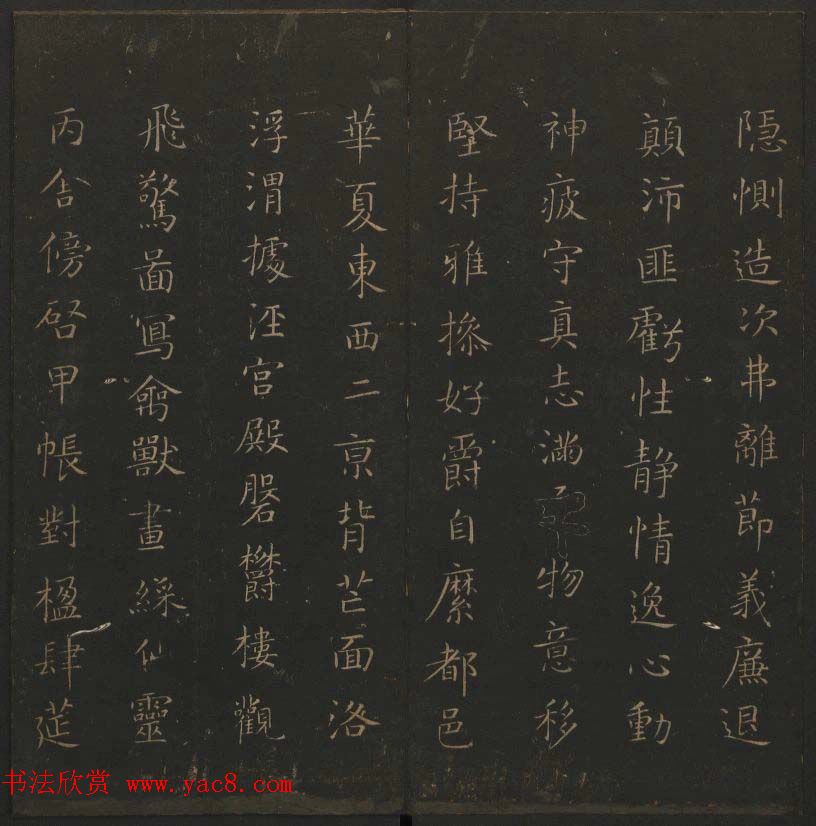 隱惻造次弗離節義廉退
顛沛匪虧性静情逸心動
神疲守真志滿物意移
堅持雅操好爵自縻都邑
華夏東西二京背芒面洛
浮渭據涇宮殿磐欝樓觀
飛驚啚寫禽獸畫綵仙靈
丙舍傍啓甲帳對楹肆筵
书法欣赏 www.yac8.com